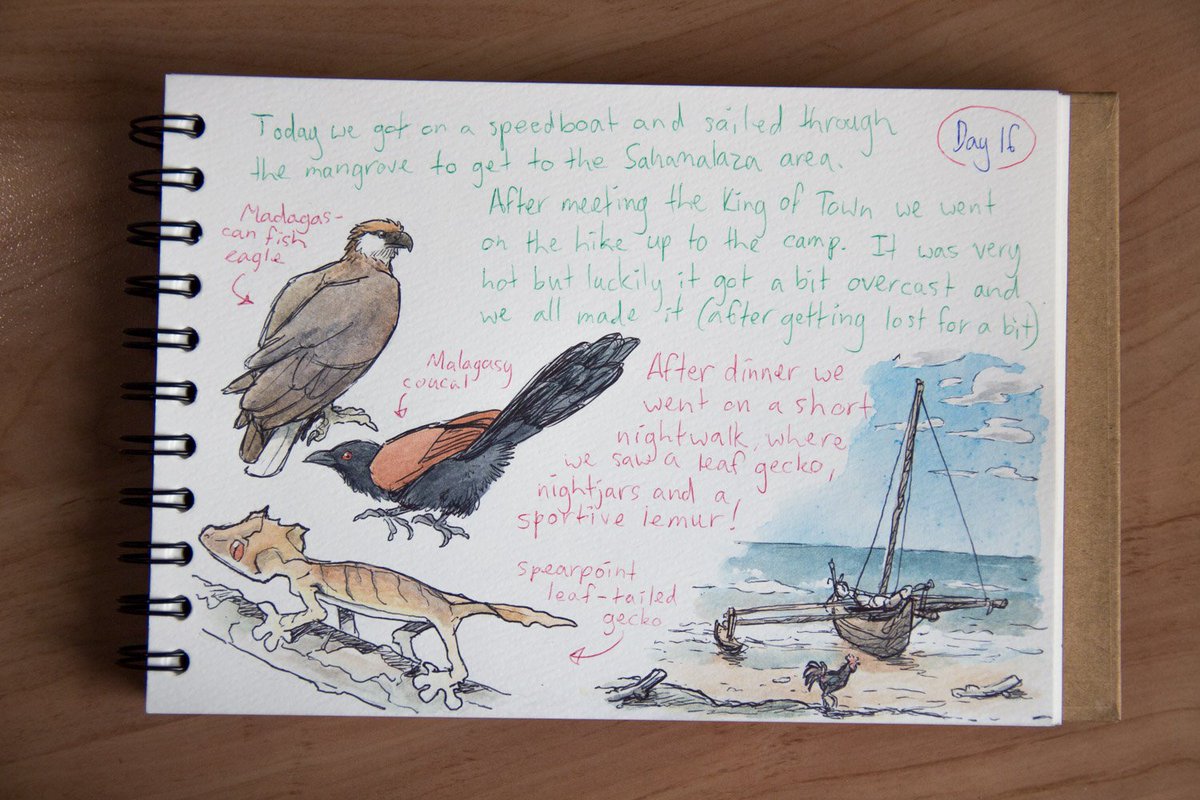 Today we got on a speedboat and sailed through
the mangrove to get to the Sahamalaza area.
Day 16
After meeting the King of Town we went
on the hike up to the camp. It was very
hot but luckily it got a bit overcast and
we all made it (after getting lost for a bit)
Madagas-
can fish
eagle
Malagasy
coucal
After dinner we
went on a short
nightwalk, where
we saw a leaf gecko,
nightjars and a
sportive lemur!
spearpoint
leaf-tailed
gecko